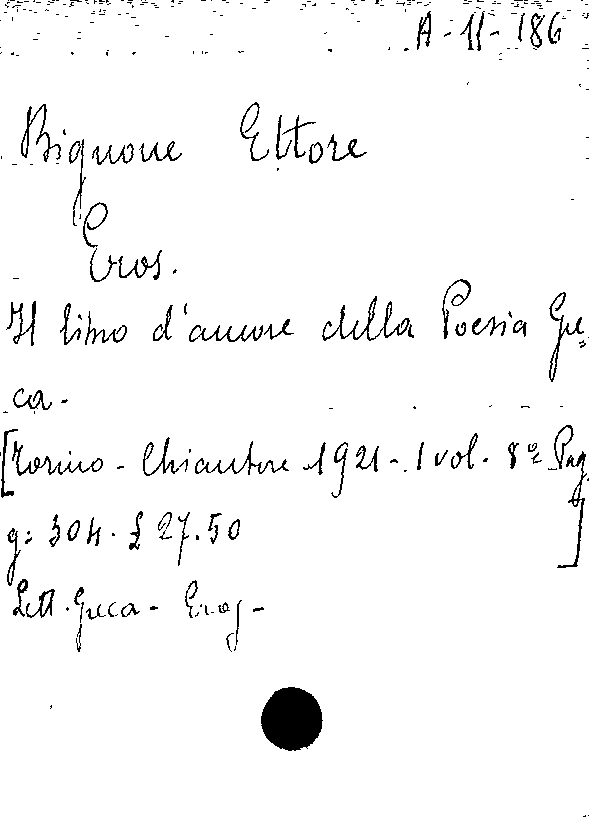 A-11-186
Bignone Ettore
Eros.
Il libro d'amore della Poesia Gre=
ca-
[Torino - Chiantore 1921 - 1 vol. 8º Pag
g= 304. £ 27.50]
Lett. Greca - Erog-